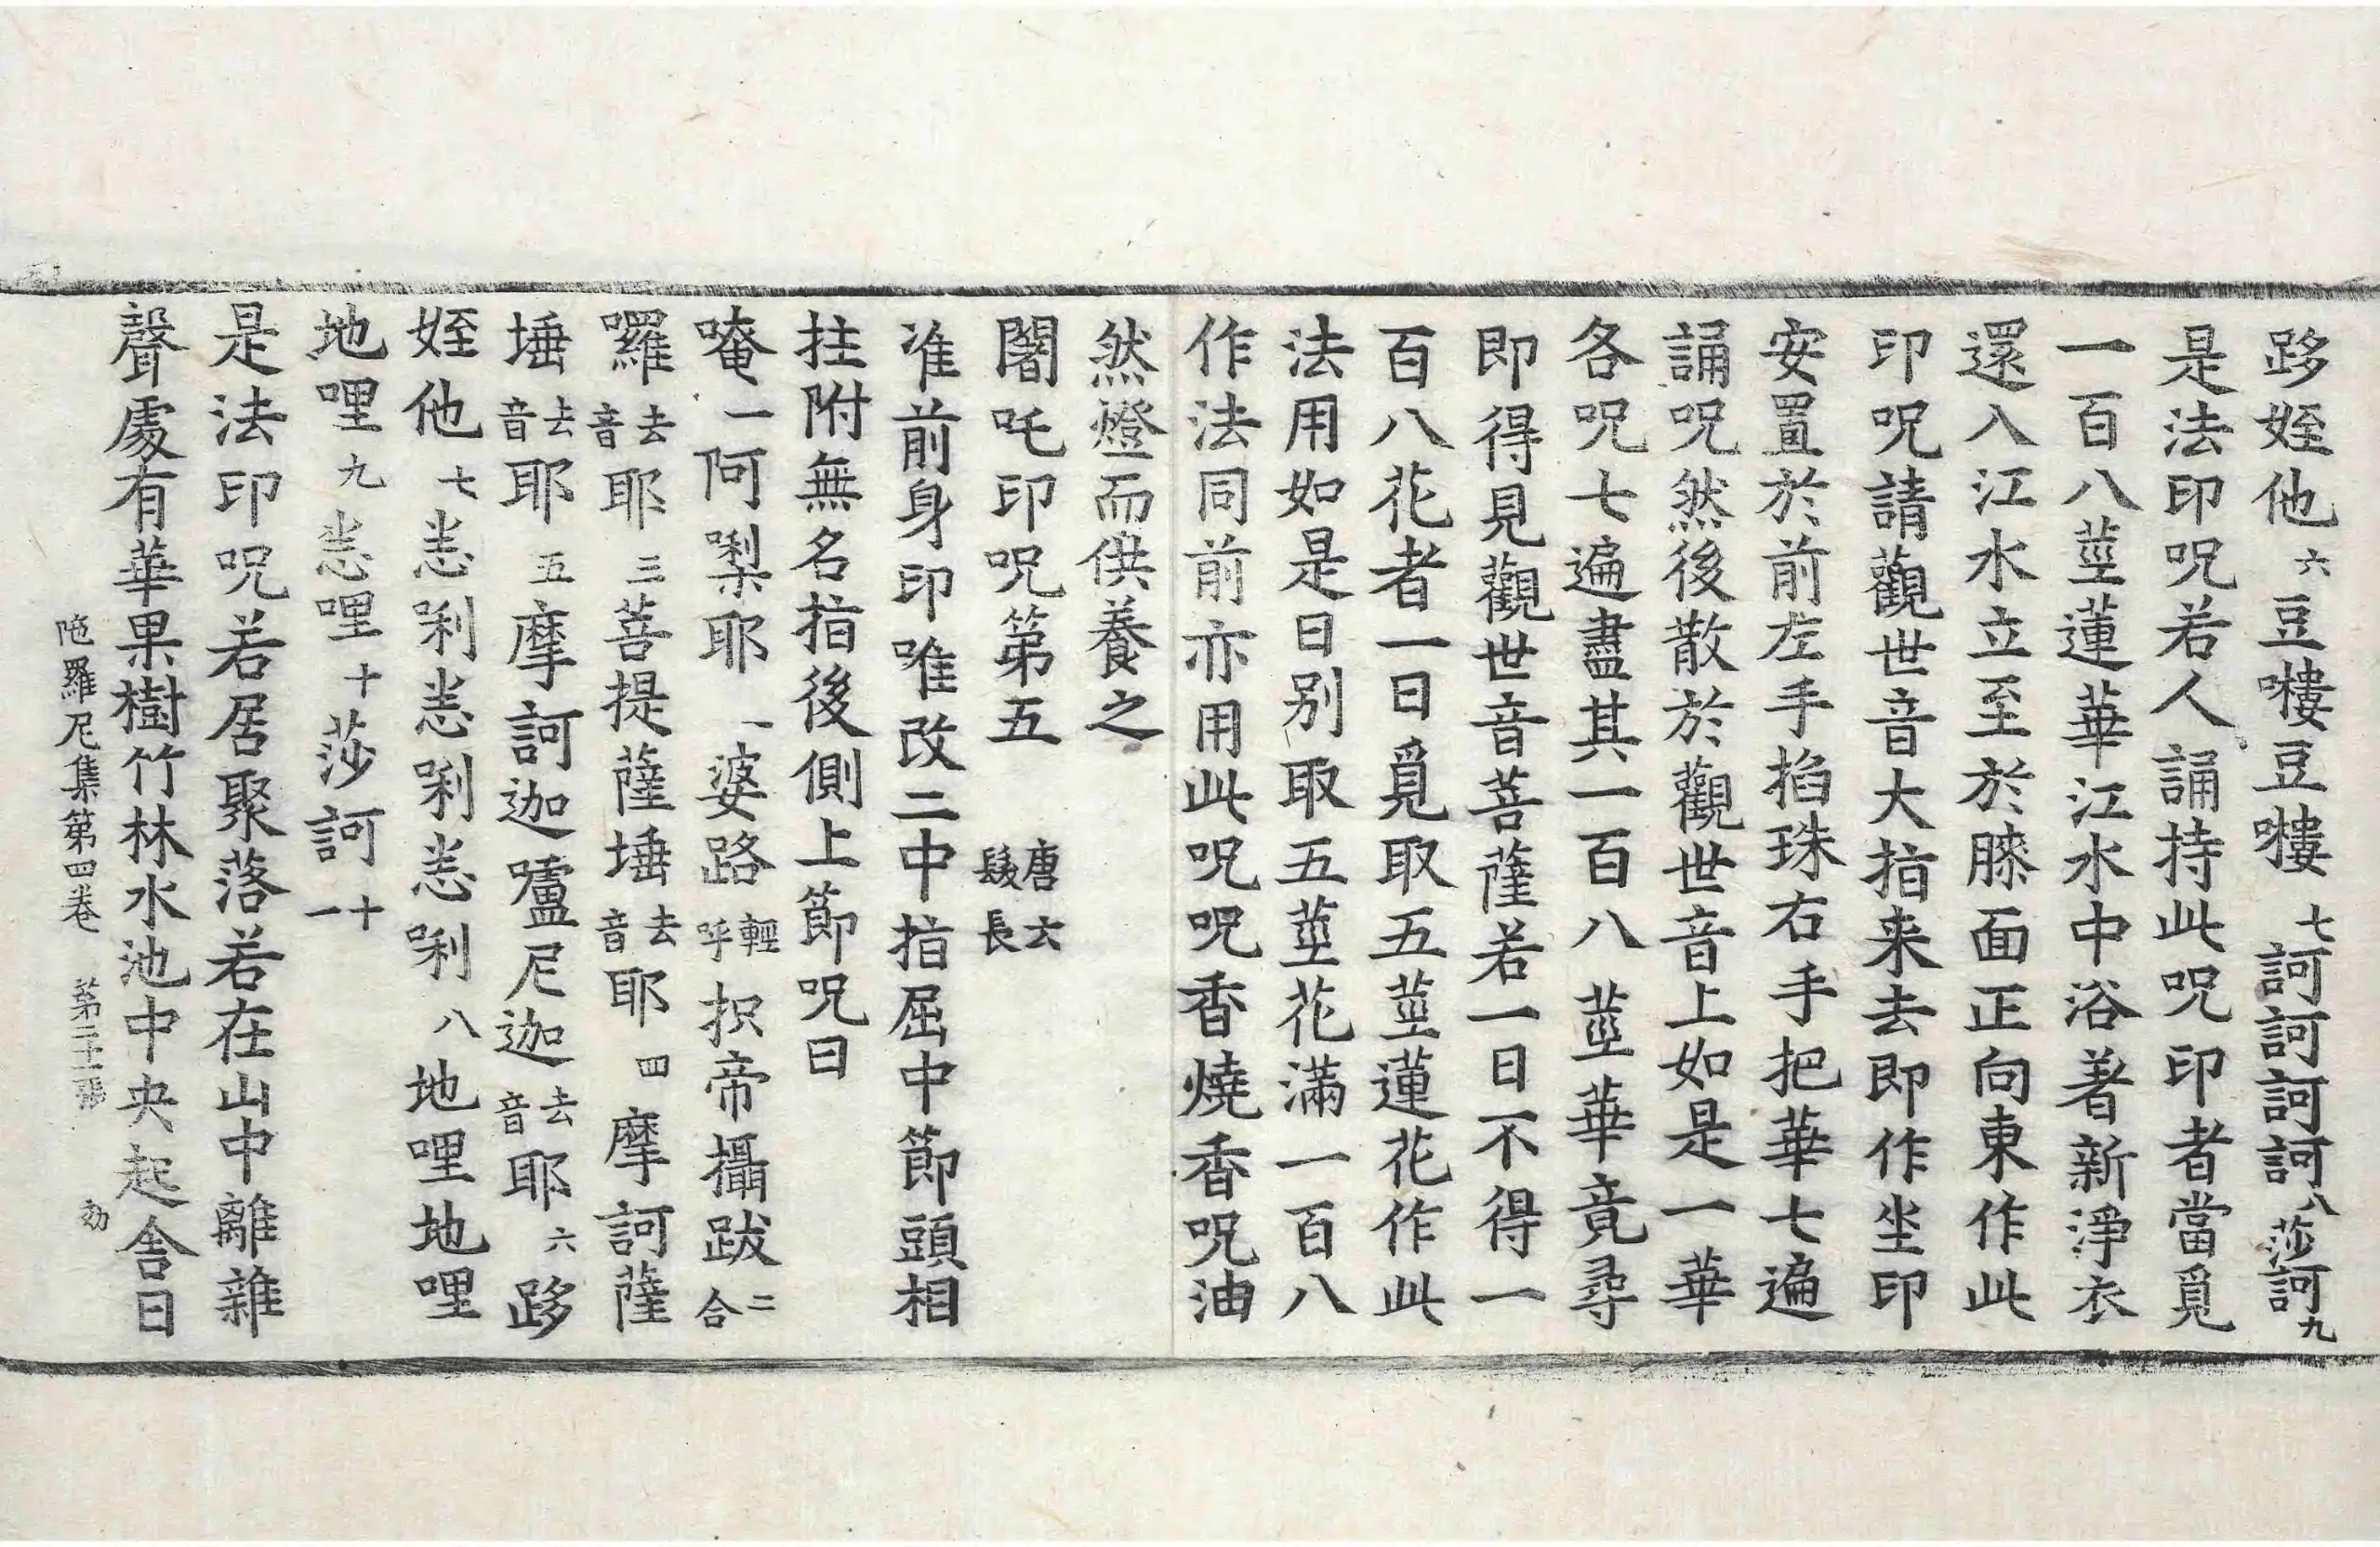 跢姪他六豆嘍豆嘍七訶訶訶訶八莎訶九
是法印呪若人誦持此呪印者當覓
一百八莖蓮華江水中浴著新淨衣
還入江水立至於膝面正向東作此
印呪請觀世音大指来去即作坐印
安置於前左手掐珠右手把華七遍
誦呪然後散於觀世音上如是一華
各呪七遍盡其一百八莖華竟尋
即得見觀世音菩薩若一日不得一
百八花者一日覓取五莖蓮花作此
法用如是日别取五莖花滿一百八
作法同前亦用此呪呪香燒香呪油
然燈而供養之
闍吒印呪第五唐云髮長
准前身印唯改二中指屈中節頭相
拄附無名指後側上節呪曰
唵一阿唎耶一婆路輕呼抧帝攝跋二合
囉去音耶三菩提薩埵去音耶四摩訶薩
埵去音耶五摩訶迦嚧尼迦去音耶六跢
姪他七恚唎恚唎恚唎八地哩地哩
地哩九恚哩十莎訶十一
是法印呪若居聚落若在山中離雜
聲處有華果樹竹林水池中央起舍日
陁羅尼集第四卷 第二十張 効